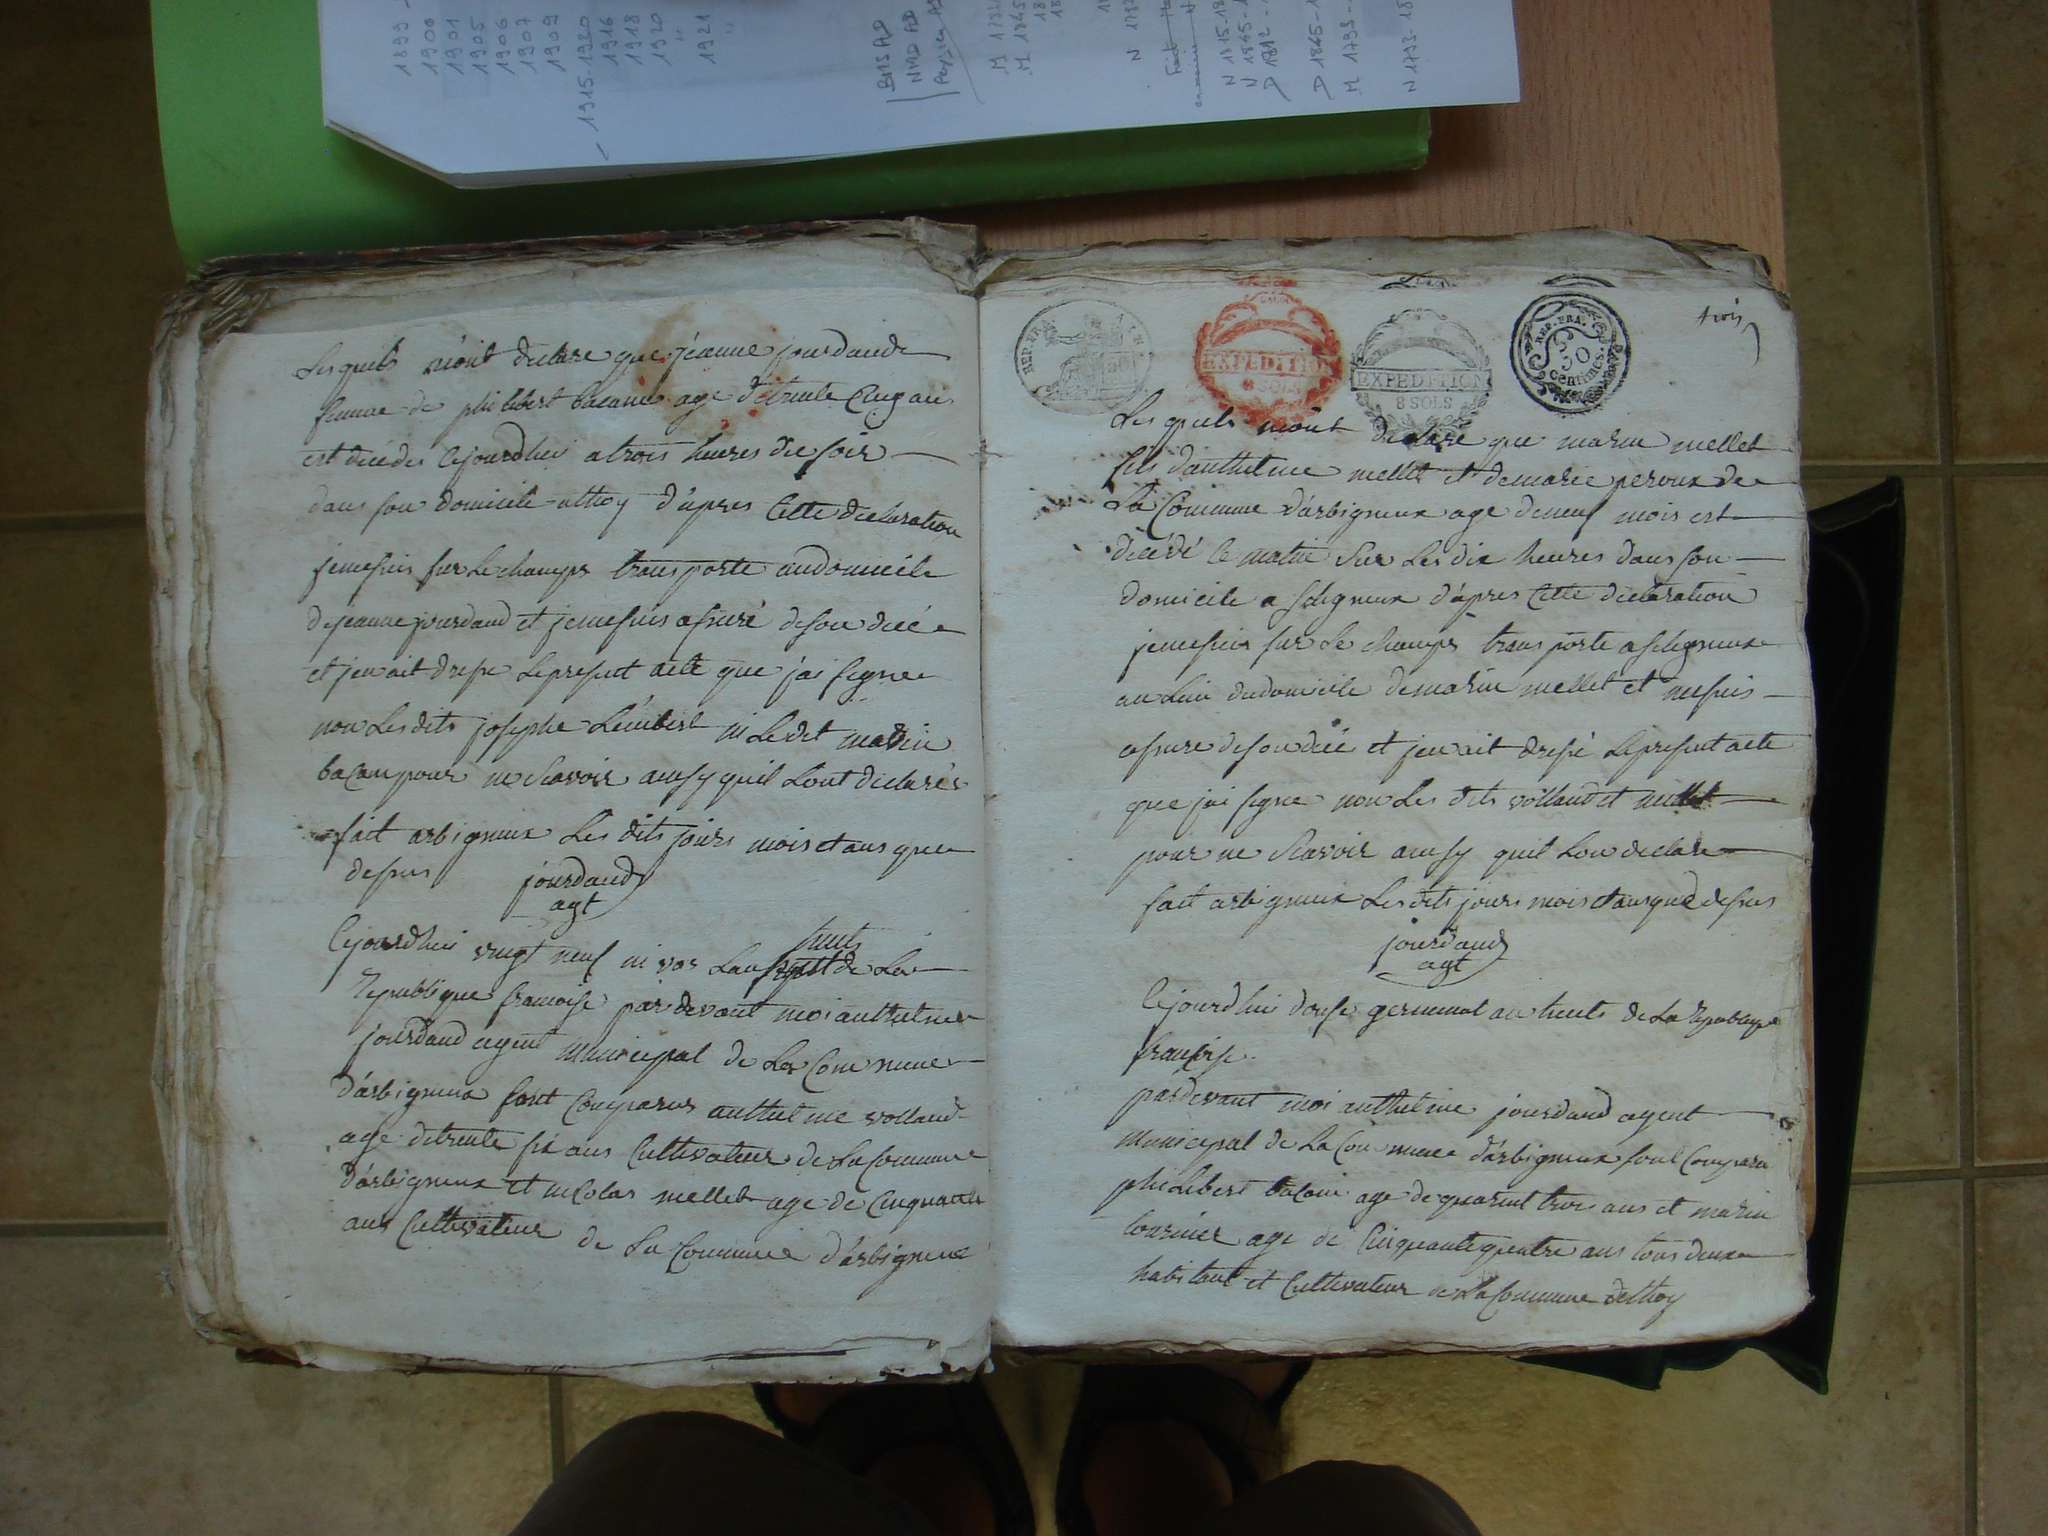 1899 -
1900
1901
1905
1906
1907
1909
- 1915-1920
1916
1918
1920
1921
BMS AD
NMD AD
M 1845
N 1815-18
N 1845-1
D 1812 -
D 1845-1
M 1793-
N 1793-18
Lesquels mont declare que jeanne jourdaude
femme de philibert bacanu age de trente Cinq ans
est decedes Cejourdhui a trois heures de soir
dans son domicile athoy d'apres Cette declaration
jemesuis sur Le champs transporte audomicile
dejeanne jourdand et jemesuis assuré deson décé
et jen ait dresse Lepresent acte que j'ai signe
non Lesdits josephe Leuibert ni Ledit marin
bacanu pour ne Scavoir ainsy quil Lont declarés
fait arbigneux Les dits jours mois et ans que
dessus jourdand
agt
Cejourdhui vingt neuf nivos Lan huit de La
Republique francoise pardevant moi anthelme
jourdand agent municipal de La Commune
d'arbigneux sont Comparus anthelme volland
age detrente six ans Cultivateur de La Commune
d'arbigneux et nicolas mellet age de Cinquante
ans Cultivateur de La Commune d'arbigneux
REP. FRA.
EXPEDITION
8 SOLS
EXPEDITION
8 SOLS
REP. FRA.
50
Centimes.
trois
Les quels mont declare que marin mellet
fils danthelme mellet et demarie peroux de
La Commune d'arbigneux age deneuf mois est
décédé Ce matin Sur Les dix heures dans son
domicile a Selignieux d'apres Cette declaration
jemesuis sur Le champs transporte a Selignieux
au Lieu dudomicile demarin mellet et mesuis
assure deson décé et jen ait dressé Lepresent acte
que jai signe non Les dits volland et mellet
pour ne Scavoir ainsy quil Lon declare
fait arbigneux Lesdits jours mois et ans que dessus
jourdand
agt
Cejourdhui douse germinal an huits de La Republique
francoise.
pardevant moi anthelme jourdand agent
municipal de La Commune d'arbigneux sont Comparu
philibert bacanu age de quarent trois ans et marin
tournier age de Cinquante quatre ans tous deux
habitant et Cultivateur de La Commune dethoy